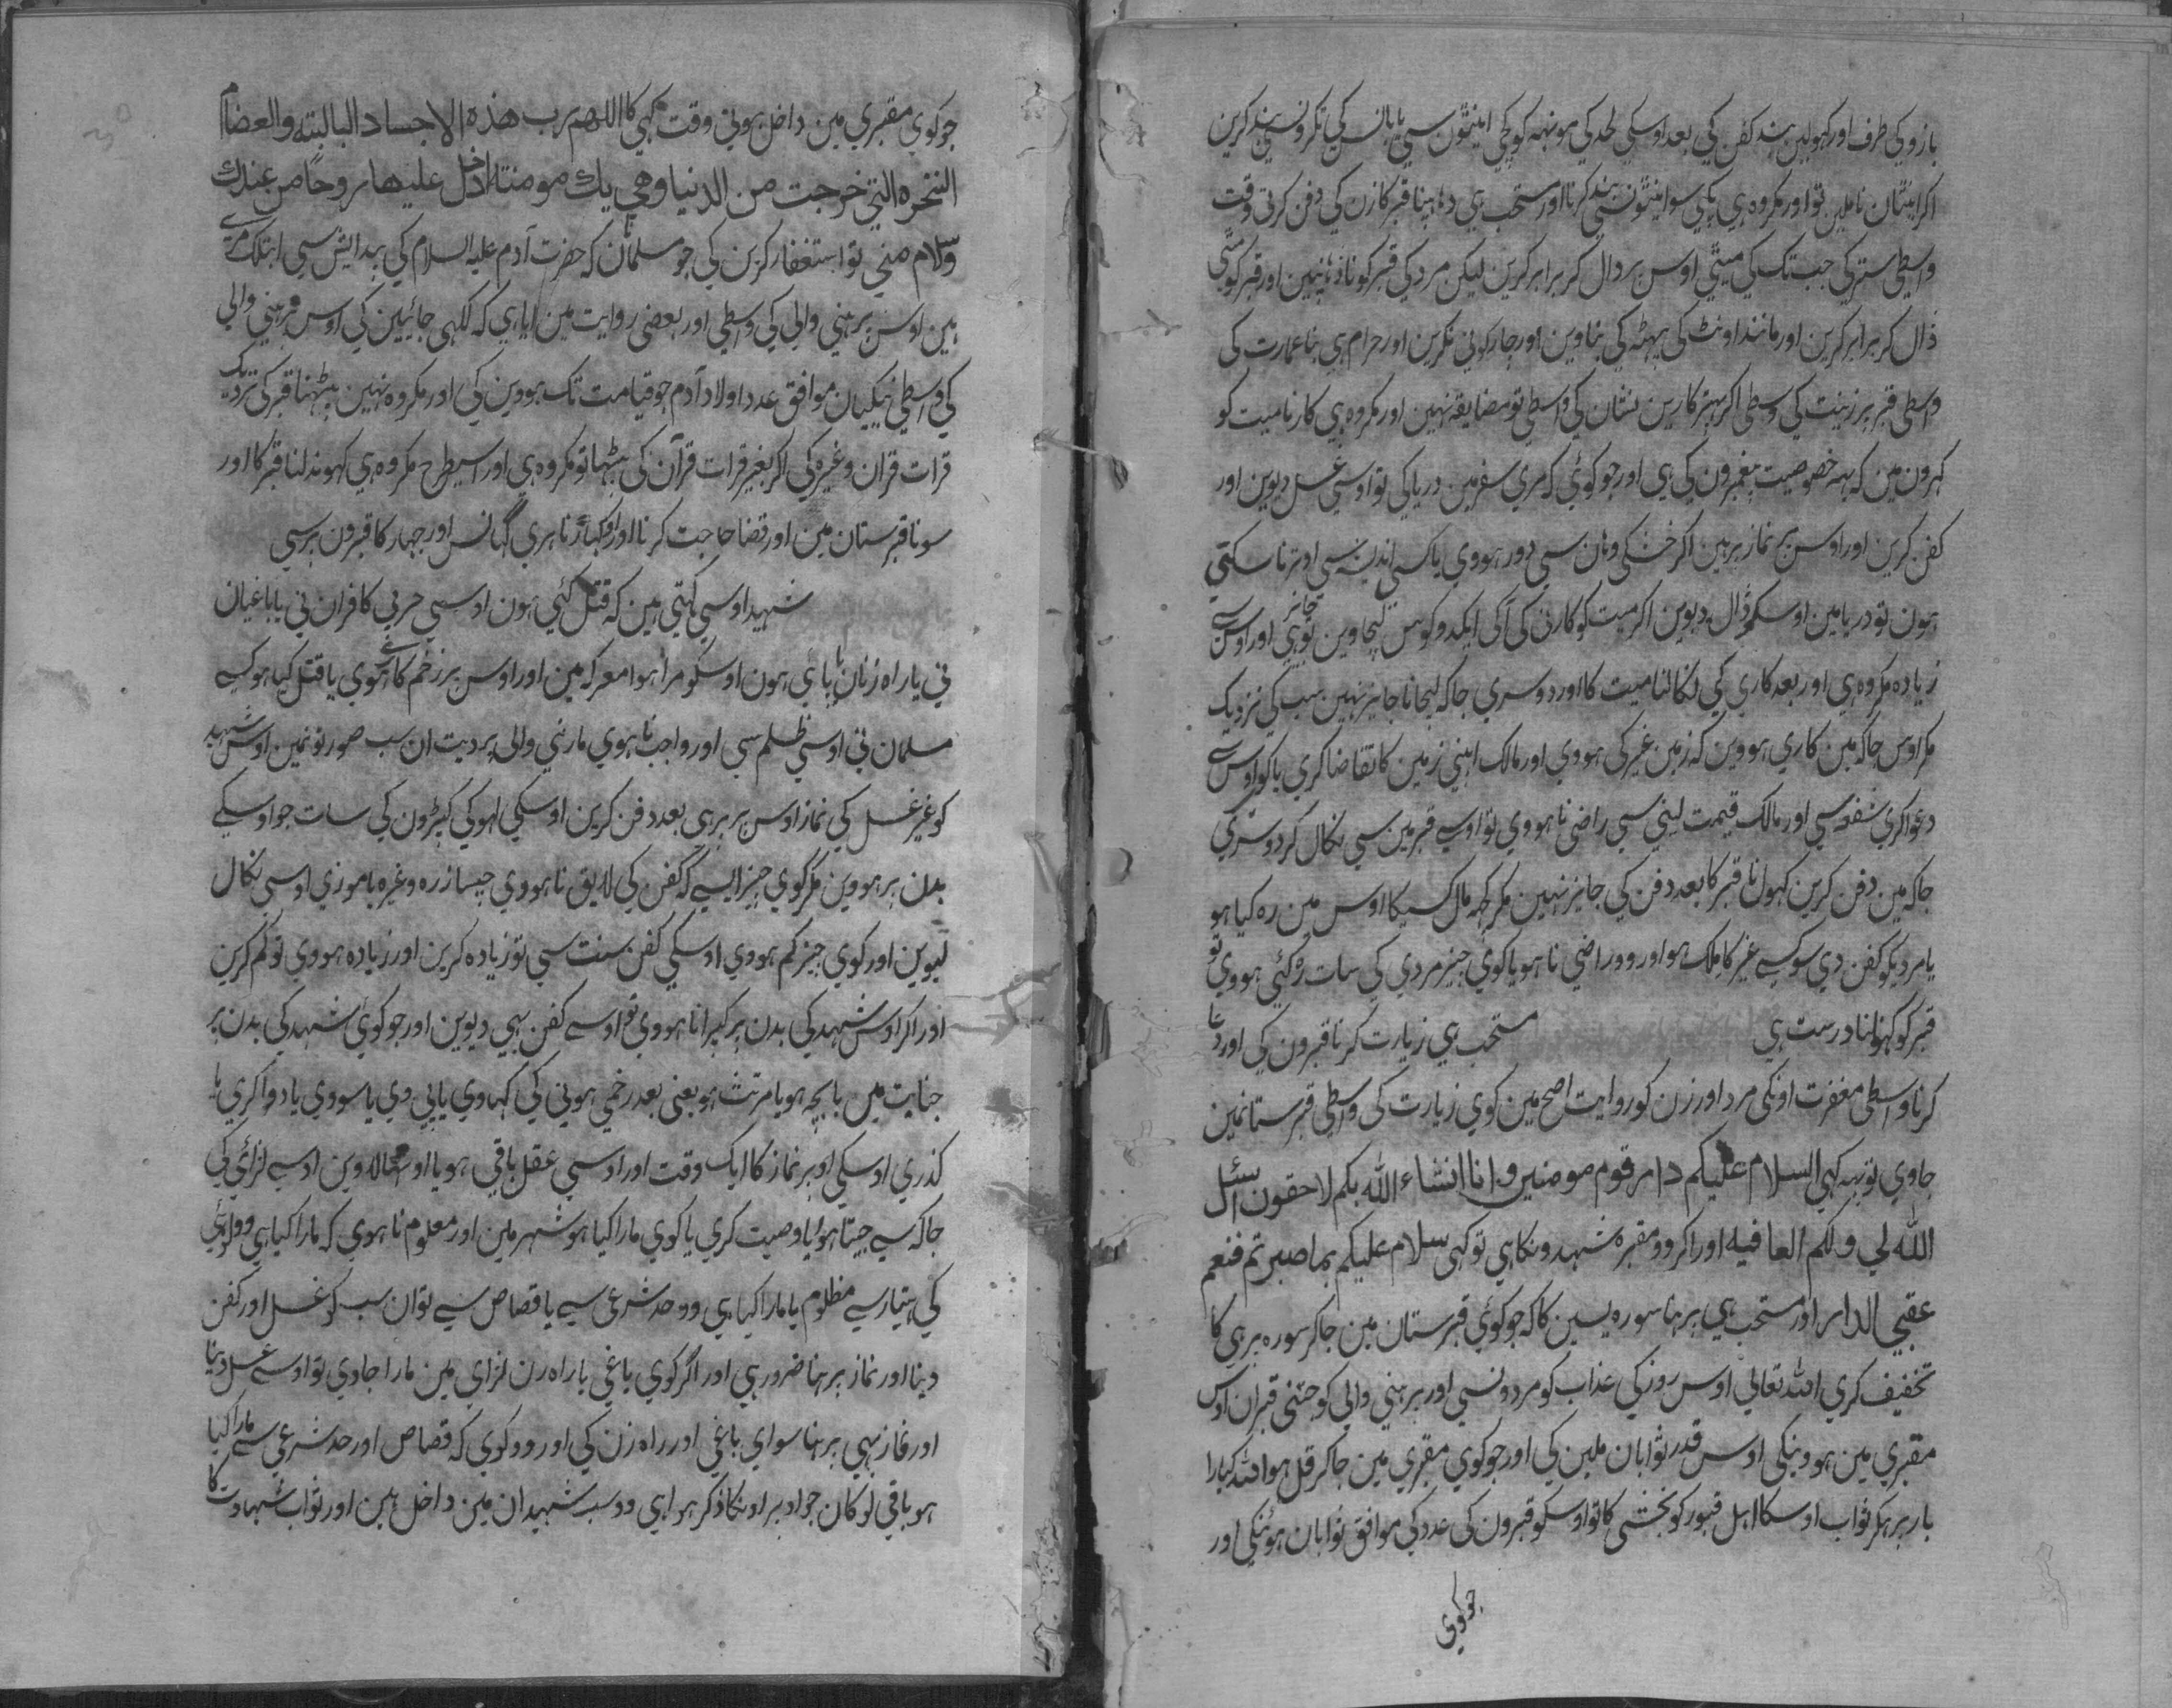 بازو کی طرف اور کہولین بند کفن کی بعد اوسکی لحد کی مونہہ کو کچی اینٹون سی یا بانس کی ٹکرونسی بند کرین
اکر اینٹان نا ملین تو اور مکروہ ہی پکی سو اینٹونسی بند کرنا اور مستحب ہی دہانپنا قبر کا زن کی دفن کرتی وقت
واسطی ستر کی جب تک کی میتی اوس پر دال کر برابر کرین لیکن مرد کی قبر کو نا دہانپین اور قبر کو مٹی
ڈال کر برابر کرین اور مانند اونٹ کی پیہٹہ کی بناوین اور چارکونی نکرین اور حرام ہی بنا عمارت کی
واسطی قبر پر زینت کی وسطی اکر پہتر کارین نشان کی واسطی تو مضایقہ نہین اور مکروہ ہی کارنا میت کو
کہرون مین کہ یہہ خصوصیت پیغمبرون کی ہی اور جو کوئی کہ مری سفر مین دریا کی تو اوسی غسل دیوین اور
کفن کرین اور اوس پر نماز پرہین اکر خشکی وہان سی دور ہووی یا کسی اندیشہ سی اوترنا سکتی
ہون تو دریا مین اوسکو ڈال دیوین اکر میت کو کارنی کی آکی ایکدو کوس لیجاوین تو جائز ہی اور اوس سے
زیادہ مکروہ ہی اور بعد کاری کی نکالنا میت کا اور دوسری جاکہ لیجانا جایز نہین سب کی نزدیک
مکر اوس جاکہ مین کاری ہووین کہ زمین غیر کی ہووی اور مالک اپنی زمین کا تقاضا کری یا کو اوس سے
دعوا کری شفعہ سی اور مالک قیمت لینی سی راضی نا ہووی تو اوسے قبر مین سی نکال کر دوسری
جاکہ مین دفن کرین کہولنا قبر کا بعد دفن کی جایز نہین مکر کچہہ مال کسیکا اوس مین رہ کیا ہو
یا مردیکو کفن دی سو کسے غیر کا ملک ہو اور وو راضی نا ہو یا کوی چیز مردی کی سات رہ کئی ہووی تو
قبر کو کہولنا درست ہی مستحب ہی زیارت کرنا قبرون کی اور دعا
کرنا واسطی مغفرت اونکی مرد اور زن کو روایت اصح مین کوی زیارت کی واسطی قبرستانمین
جاوی تو یہہ کہی السلام علیکم دار قوم مومنین و انا انشاء الله بکم لاحقون اسئل
الله لي و لکم العافیه اور اکر وو مقبرہ شہدونکا ہی تو کہی سلام علیکم بما صبرتم فنعم
عقبی الدار اور مستحب ہی پرہنا سورہ یسین کا کہ جو کوئی قبرستان مین جاکر سورہ پرہی کا
تخفیف کری الله تعالی اوس روز کی عذاب کو مردونسی اور پرہنی والی کو جتنی قبران اوس
مقبری مین ہووینکی اوس قدر ثوابان ملین کی اور جو کوی مقبری مین جاکر قل ہو الله کیارا
بار پرہکر ثواب اوسکا اہل قبور کو بخشی کا تو اوسکو قبرون کی عدد کی موافق ثوابان ہونکی اور
جو کوی
جو کوی مقبری مین داخل ہوتی وقت کہی کا اللهم رب هذه الاجساد البالیته والعضام
النخره التي خرجت من الدنیا وهي بك مومنته ادخل علیها روحاً من عندك
وسلام مني تو استغفار کرین کی جو مسلمانان کہ حضرت آدم علیہ السلام کی پیدایش سی ابتلک مرے
ہین اوس پرہنی والی کی واسطی اور بعضی روایت مین ایا ہی کہ لکہی جائیین کی اوس پرہنی والی
کی واسطی نیکیان موافق عدد اولاد آدم جو قیامت تک ہووین کی اور مکروہ نہین بیٹہنا قبر کی نزدیک
قرات قران وغیرہ کی اکر بغیر قرات قرآن کی بیٹہا تو مکروہ ہی اور اسیطرح مکروہ ہی کہوندلنا قبر کا اور
سونا قبرستان مین اور قضا حاجت کرنا اور اوکہاڑنا ہری گہانس اور جہار کا قبرون پرسی
شہید اوسی کہتی ہین کہ قتل کئی ہون اوسی حربی کافران نی یا باغیان
نی یا راہ زنان یا پائی ہون اوسکو مرا ہوا معرکہ مین اور اوس پر زخم کا ہووی یا قتل کیا ہو کسے
مسلمان نی اوسی ظلم سی اور واجب نا ہوی مارنی والی پر دیت ان سب صورتونمین اوس شہید
کو غیر غسل کی نماز اوس پر پرہی بعد دفن کرین اوسکی لہو کی کپڑون کی سات جو اوسکے
بدن پر ہووین مکر کوی چیز ایسے کہ کفن کی لایق نا ہووی جیسا زرہ وغیرہ یا موزی اوسی نکال
لیوین اور کوی چیز کم ہووی اوسکی کفن سنت سی تو زیادہ کرین اور زیادہ ہووی تو کم کرین
اور اکر اوس شہید کی بدن پر کپرا نا ہووی تو اوسے کفن بہی دیوین اور جو کوی شہید کی بدن پر
جنایت مین یا بچہ ہو یا مرتث ہو یعنی بعد زخمی ہونی کی کہاوی یا پی وی یا سووی یا دوا کری یا
کذری اوسکی اوپر نماز کا ایک وقت اور اوسی عقل باقی ہو یا اوٹہالاوین اوسے لڑائی کی
جاکہ سے جیتا ہوا یا وصیت کری یا کوی مارا کیا ہو شہر مین اور معلوم نا ہوی کہ مارا کیا ہی وو لوہی
کی ہتیار سے مظلوم یا مارا کیا ہی وو حد شرعی سے یا قصاص سے تو ان سب کو غسل اور کفن
دینا اور نماز پرہنا ضرور ہی اور اگر کوی باغی یا راہ زن لڑای مین مارا جاوی تو اوسے غسل دینا
اور نماز نہی پرہنا سوای باغی اور راہ زن کی اور وو کوی کہ قصاص اور حد شرعی سے مارا کیا
ہو باقی لوکان جو اوپر اونکا ذکر ہوا ہی وو سب شہیدان مین داخل ہین اور ثواب شہادت کا